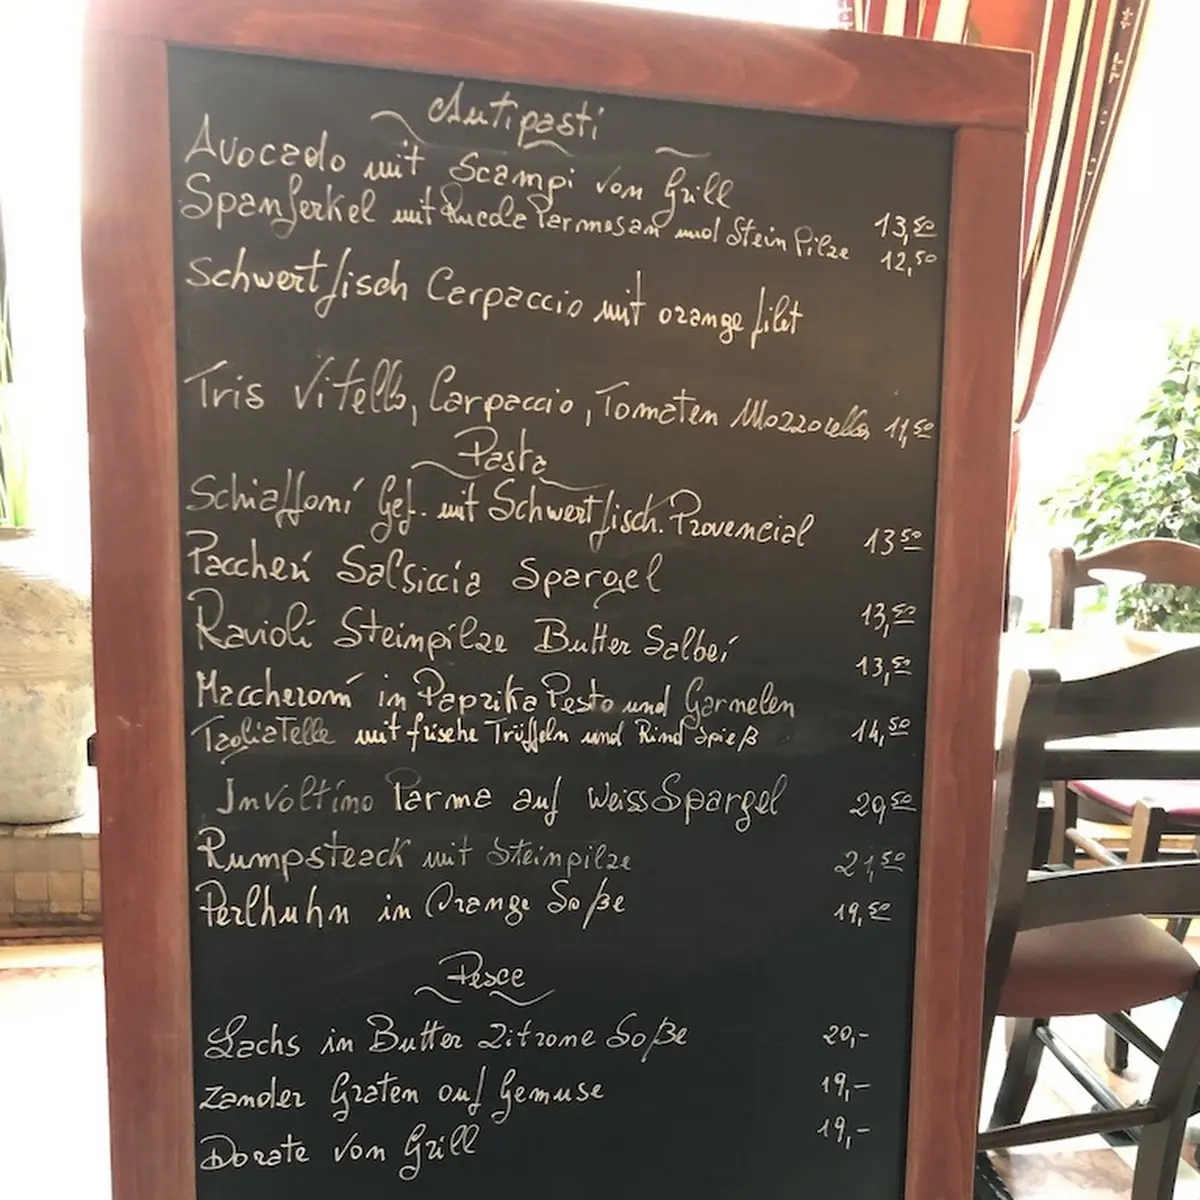 Antipasti
Avocado mit Scampi vom Grill 13,50
Spanferkel mit Rucola Parmesan und Stein Pilze 12,50
Schwertfisch Carpaccio mit orange filet
Tris Vitello, Carpaccio, Tomaten Mozzarella 11,50
Pasta
Schiaffoni Gef. mit Schwertfisch. Provencial 13 50
Paccheri Salsiccia Spargel 13,50
Ravioli Steinpilze Butter Salbei 13,50
Maccheroni in Paprika Pesto und Garnelen 14,50
Tagliatelle mit frische Trüffeln und Rind Spieß
Involtino Parma auf weiss Spargel 20,50
Rumpsteack mit Steinpilze 21,50
Perlhuhn in Orange Soße 19,50
Pesce
Lachs in Butter Zitrone Soße 20,-
Zander Graten auf Gemuse 19,-
Dorate vom Grill 19,-